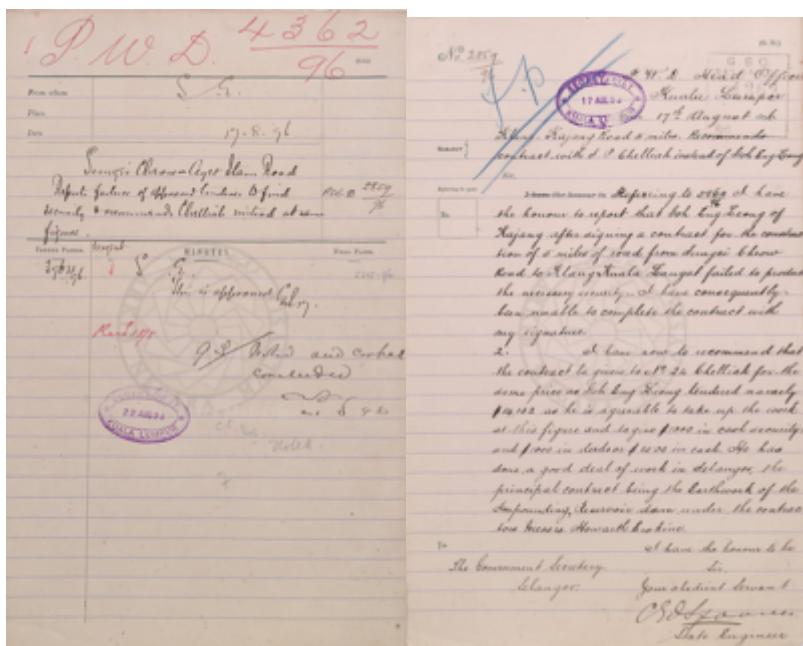 P.W.D. 4362
96
From whom
S. E.
Place
Date
17-8-96
Sungei Chrow Ayer Itam Road
Reports failure of approved tenderer to find
security & recommends Chelliah instead at same
figures.
P.W.D 2859
96
MINUTES
S. E.
This is approved
Noted and contract
concluded
SECRETARIAT
22 AUG 96
KUALA LUMPUR
Noted.
No. 2859
96
P. W. D. Head Office
Kuala Lumpur
17th August 96
SECRETARIAT
17 AUG 96
KUALA LUMPUR
Klang Kajang Road 2 miles. Recommends
contract with S. P. Chelliah instead of Loh Eng Leong
Sir,
Referring to 2859 I have
96
the honour to report that Loh Eng Leong of
Kajang after signing a contract for the construc
tion of 2 miles of road from Sungei Chrow
Road to Klang Kuala Langat failed to produce
the necessary security. I have consequently
been unable to complete the contract with
my signature.
2. I have now to recommend that
the contract be given to No. 24 Chelliah for the
same price as Loh Eng Leong tendered namely
as he is agreeable to take up the work
at this figure and to give $1000 in cash security
and $1000 in in cash. He has
done a good deal of work in Selangor, the
principal contract being the Earthwork of the
Impounding Reservoir dam under the contrac
tors Messrs. Howarth Erskine.
I have the honour to be
Sir,
To
The Government Secretary
Selangor.
Your obedient Servant
State Engineer